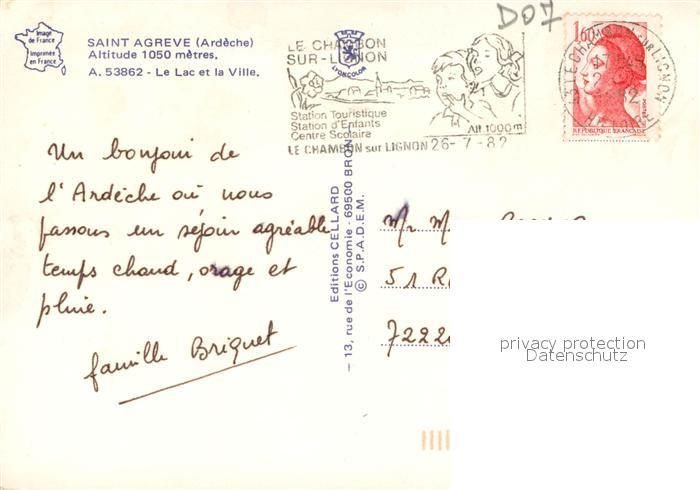 Image
de France
Imprimée
en France
SAINT AGREVE (Ardèche)
Altitude 1050 mètres.
A. 53862 - Le Lac et la Ville.
LE CHAMBON
SUR-LIGNON
LYONCOLOR
Station Touristique
Station d'Enfants
Centre Scolaire
Alt 1000m
LE CHAMBON sur LIGNON 26-7-82
D07
1,60
REPUBLIQUE FRANCAISE
LE CHAMBON SUR LIGNON
Un bonjour de
l'Ardèche où nous
passons un séjour agréable
temps chaud, orage et
pluie.
famille Briquet
Editions CELLARD
— 13, rue de l'Economie - 69500 BRON
© S.P.A.D.E.M.
Mr M
51 R
7222
privacy protection
Datenschutz